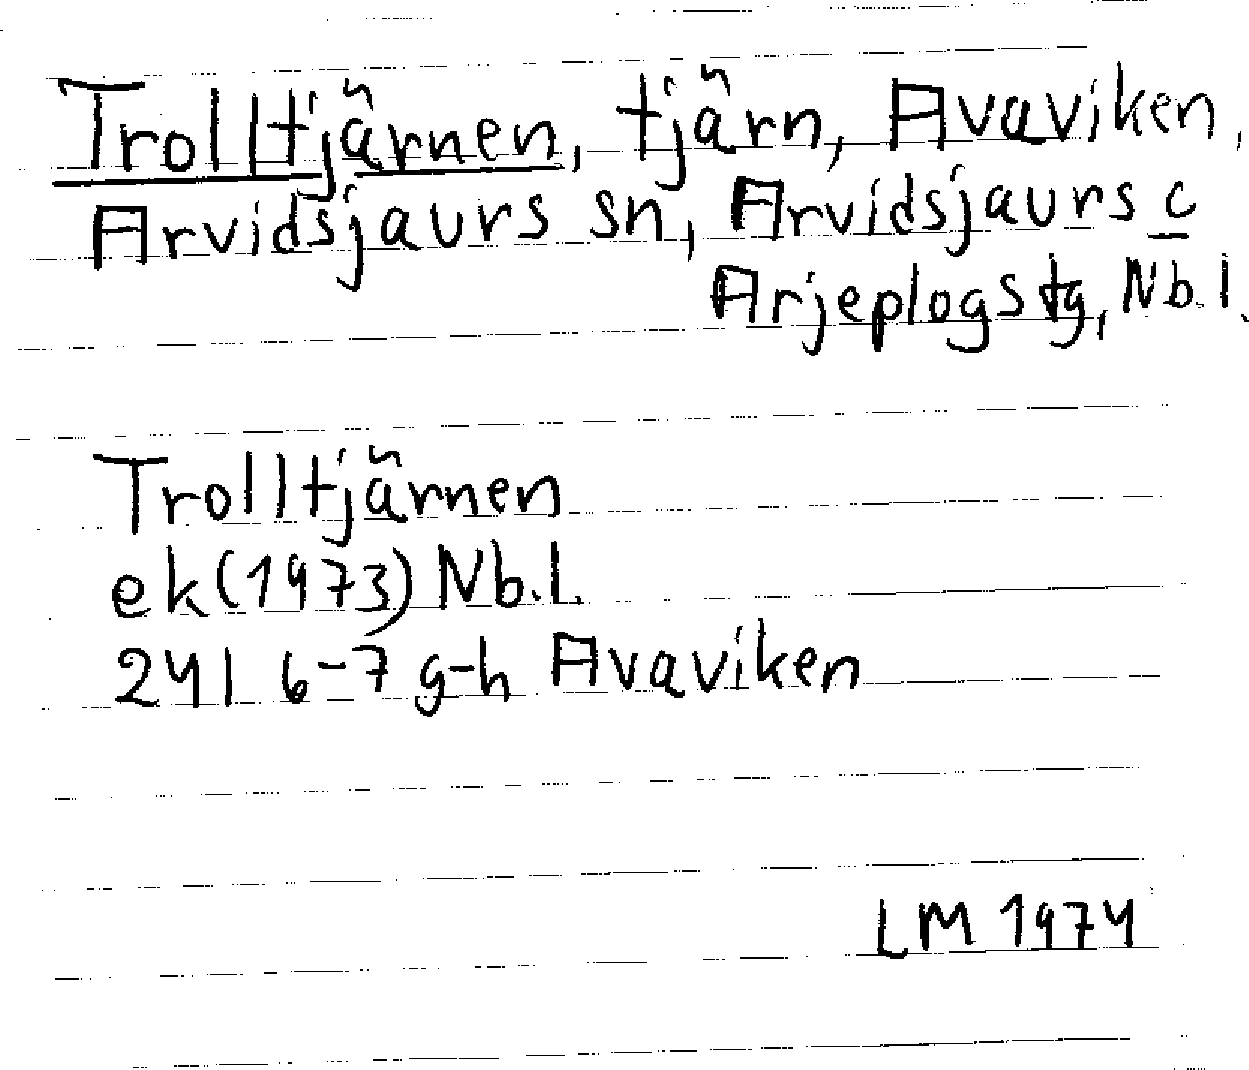 Trolltjärnen, tjärn, Avaviken,
Arvidsjaurs sn, Arvidsjaurs c
Arjeplogs tg, Nb.l.
Trolltjärnen
ek (1973) Nb.l.
24I 6-7 g-h Avaviken
LM 1974